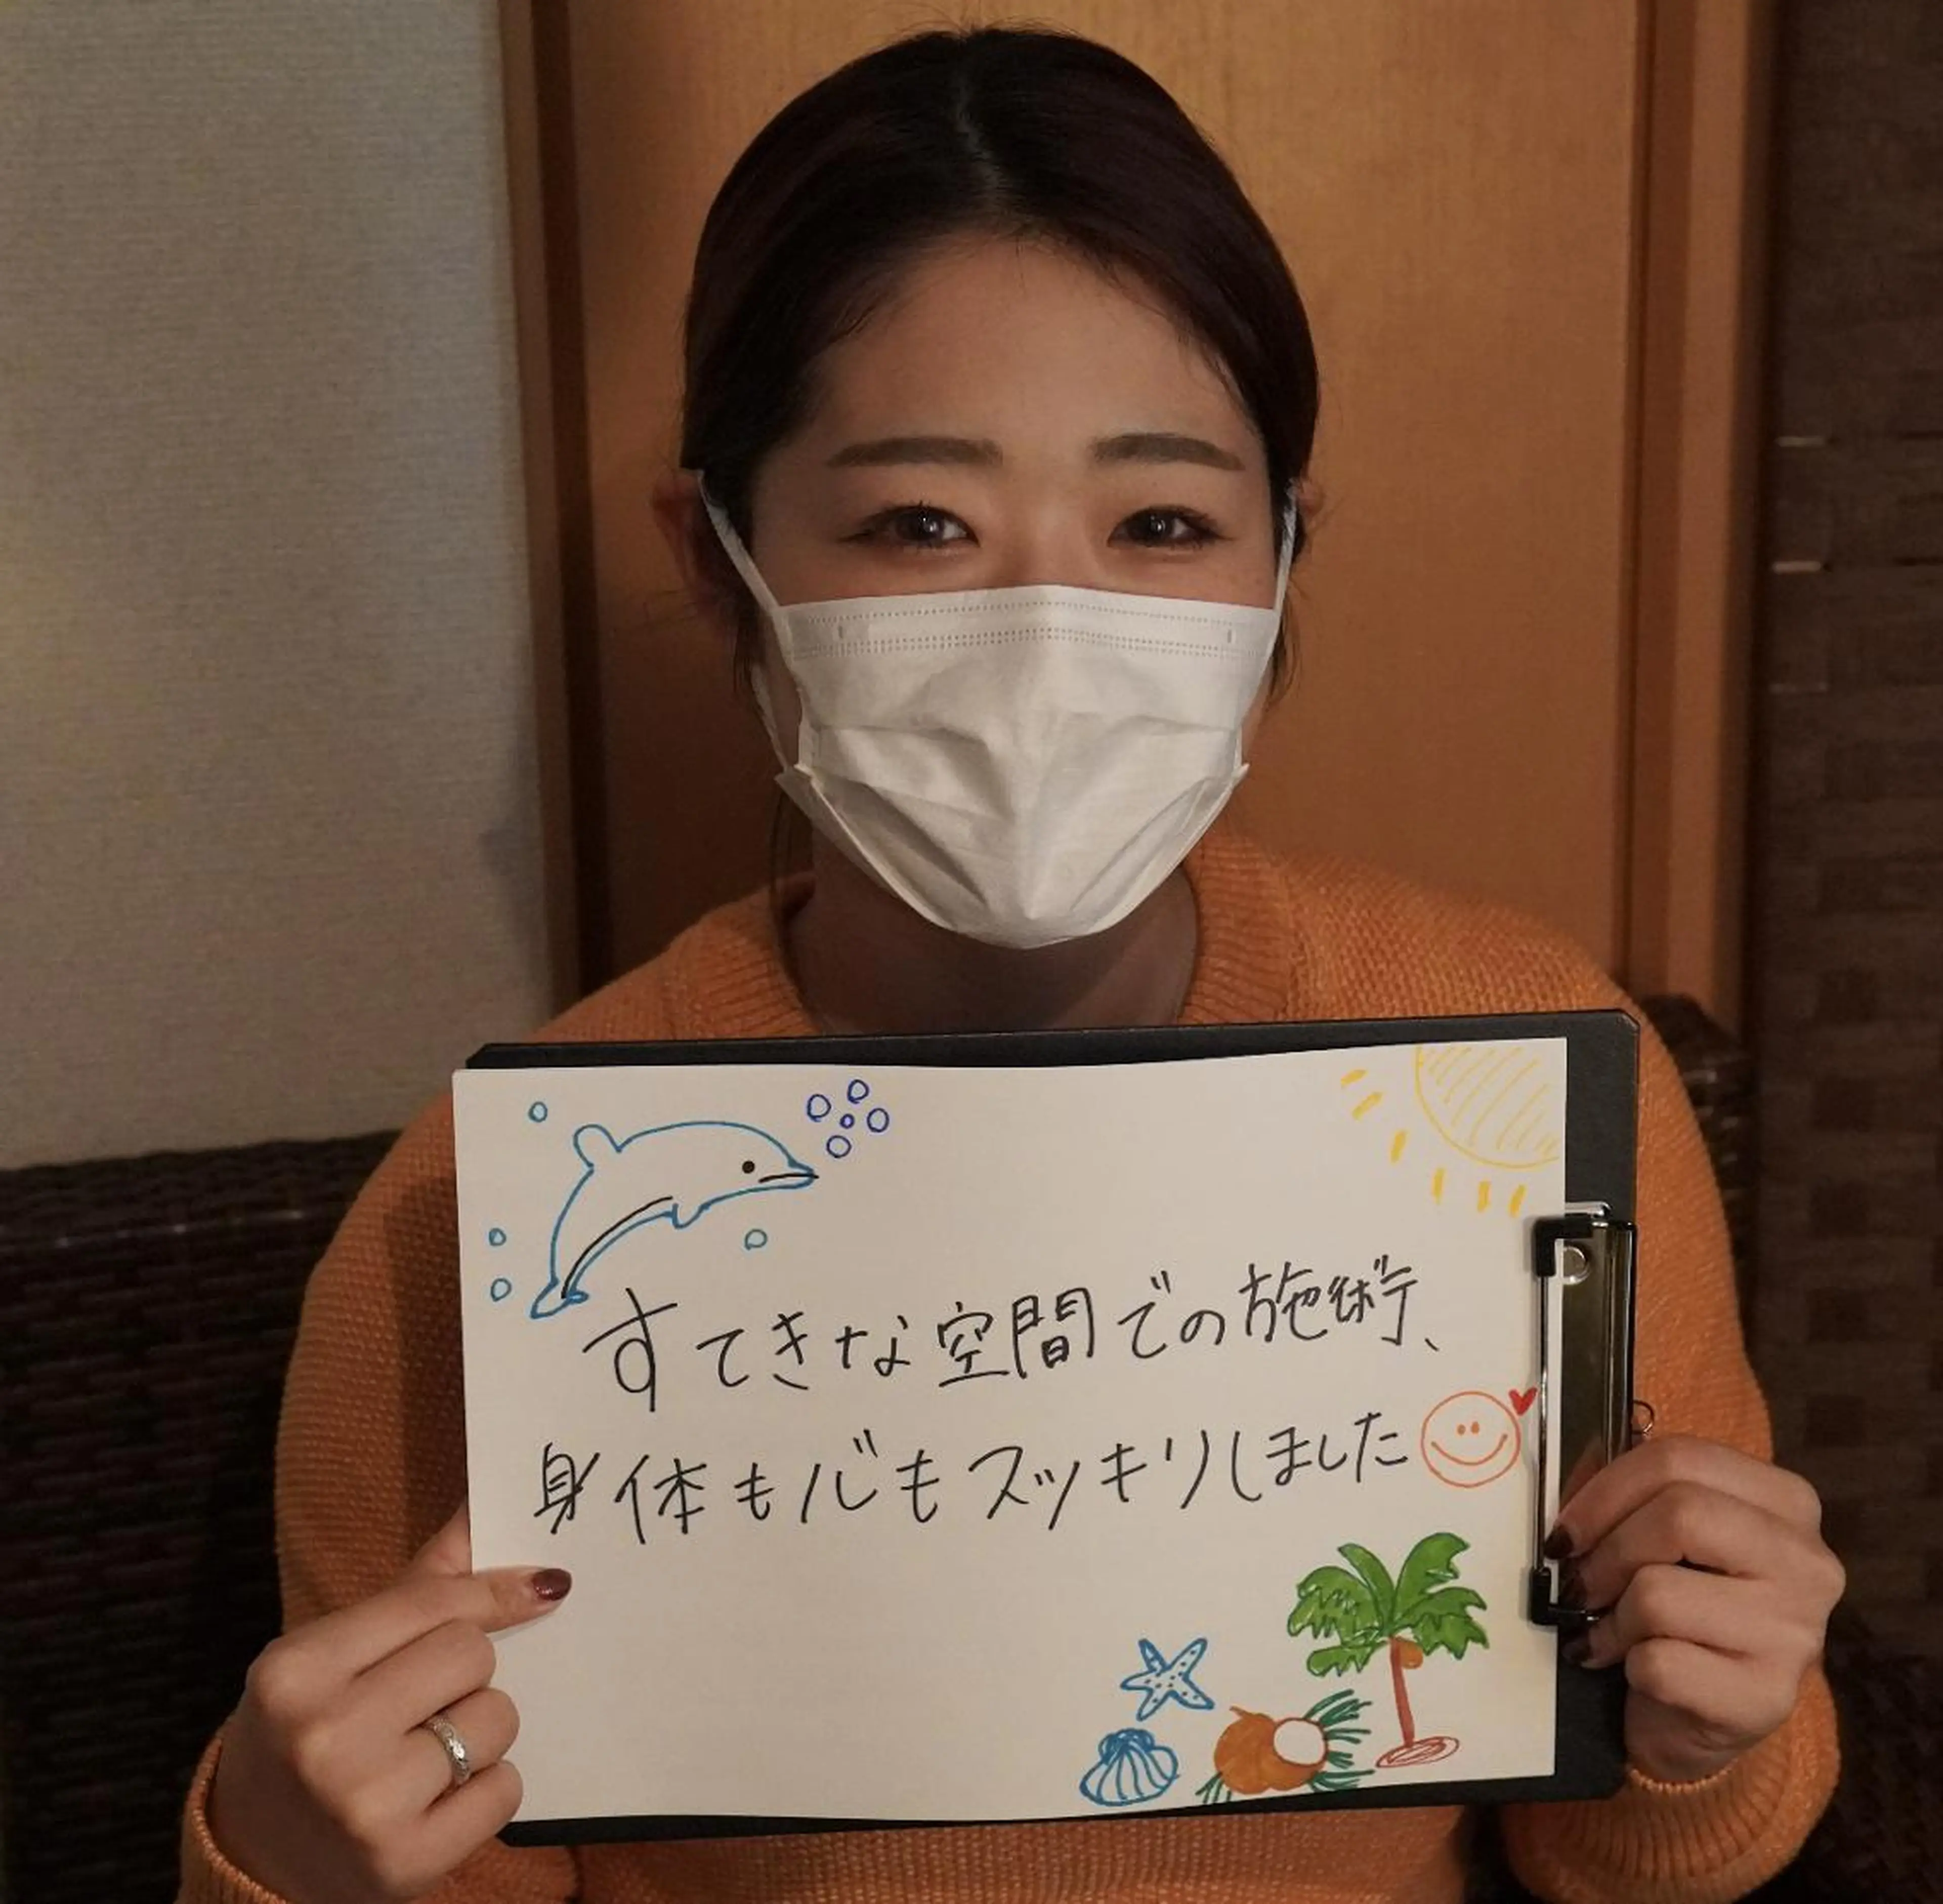 すてきな空間での施術、
身体も心もスッキリしました